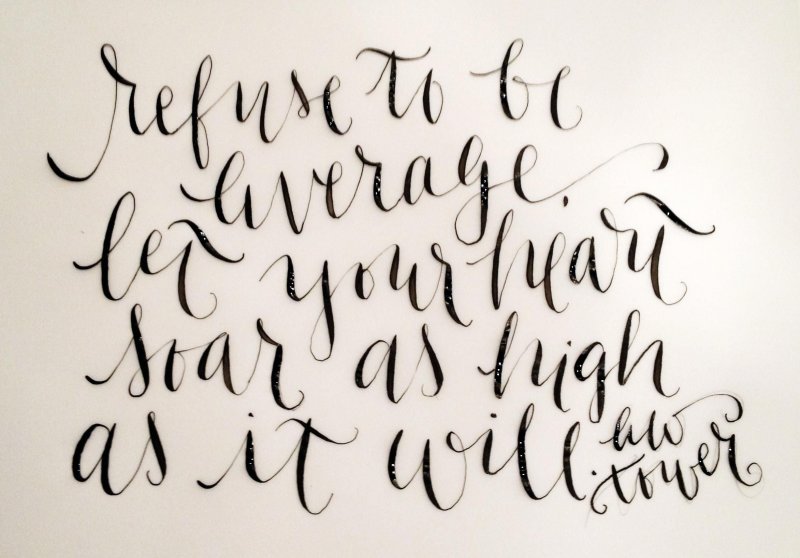 refuse to be
average.
let your heart
soar as high
as it will.
aw
tower